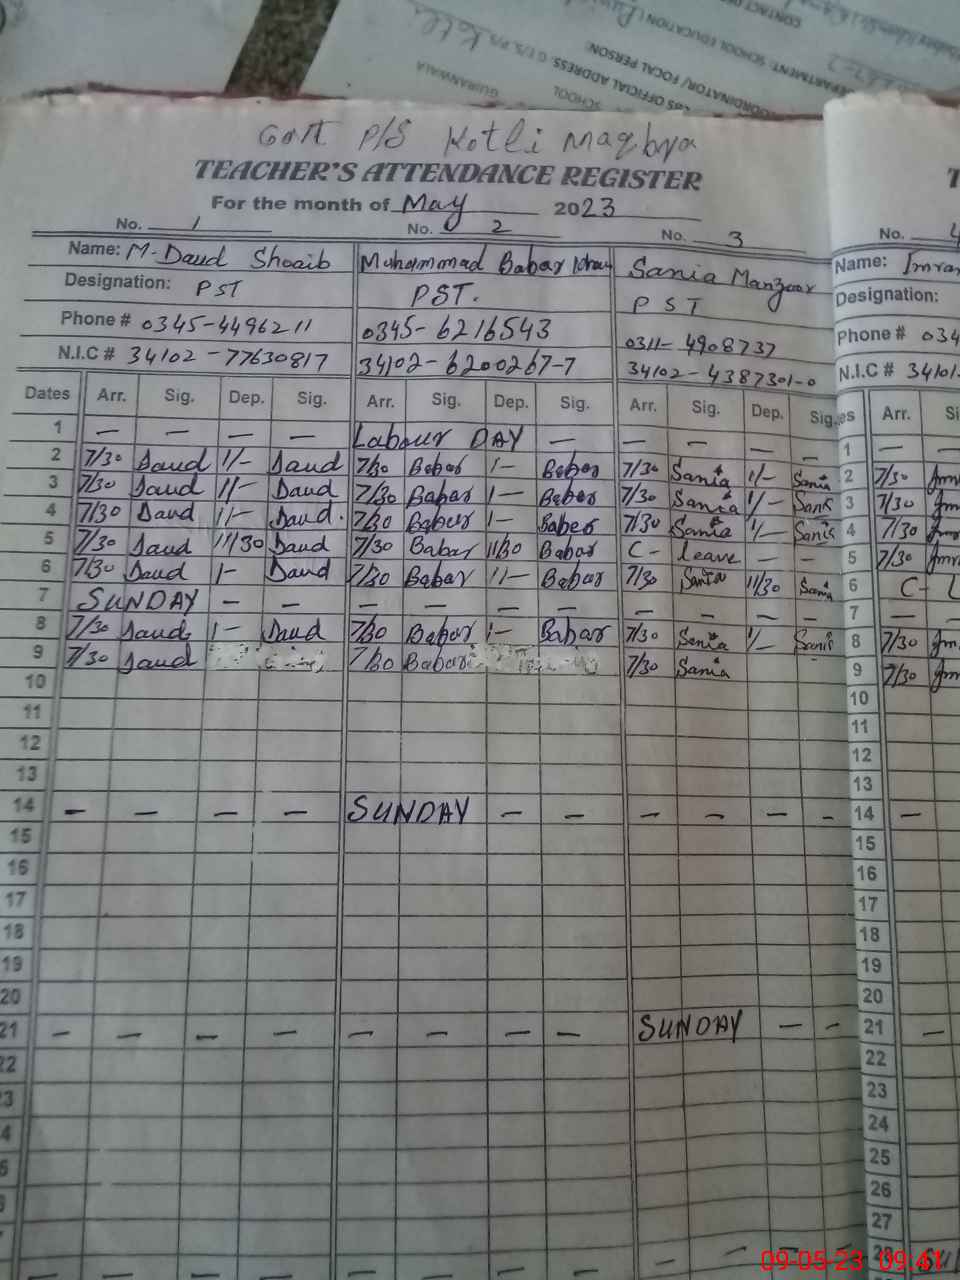 CONTACT
DEPARTMENT: SCHOOL EDUCATION
COORDINATOR/ FOCAL PERSON:
OFFICIAL ADDRESS
SCHOOL
GUJRANWALA
Govt P/S Kotli Maqbya
TEACHER'S ATTENDANCE REGISTER
For the month of May 2023
No. 1 No. 2 No. 3 No. 4
Name: M. Daud Shoaib Muhammad Babar Khan Sania Manzoor Name: Imran
Designation: PST PST. PST Designation:
Phone # 0345-4496211 0345-6216543 0311-4908737 Phone # 034
N.I.C # 34102-77630817 34102-6200267-7 34102-4387301-0 N.I.C # 34101-
Dates Arr. Sig. Dep. Sig. Arr. Sig. Dep. Sig. Arr. Sig. Dep. Sig. es Arr. Si
1 — — — — Labour DAY — — — — — 1 —
2 7/30 Daud 1/— Daud 7/30 Babar 1— Babar 7/30 Sania 1/— Sania 2 7/30
3 7/30 Daud 1/— Daud 7/30 Babar 1— Babar 7/30 Sania 1/— Sania 3 7/30
4 7/30 Daud 1/— Daud. 7/30 Babar 1— Babar 7/30 Sania 1/— Sania 4 7/30
5 7/30 Daud 11/30 Daud 7/30 Babar 11/30 Babar C- Leave — — 5 7/30
6 7/30 Daud 1— Daud 7/30 Babar 1/— Babar 7/30 Sania 11/30 Sania 6 C- L
7 SUNDAY — — — — — — — — — — 7 —
8 7/30 Daud 1— Daud 7/30 Babar 1— Babar 7/30 Sania 1/— Sania 8 7/30
9 7/30 Daud 7/30 Babar 7/30 Sania 9 7/30
10 10
11 11
12 12
13 13
14 — — — — SUNDAY — — — — — — 14 —
15 15
16 16
17 17
18 18
19 19
20 20
21 — — — — — — — — SUNDAY — — 21 —
22 22
3 23
4 24
5 25
26
27
28
09-05-23 09:41